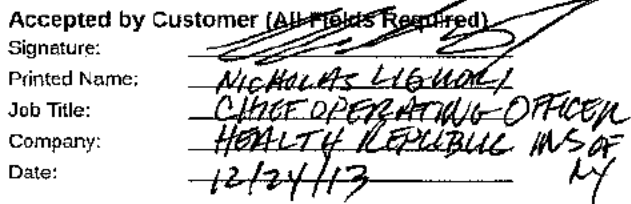 Accepted by Customer (All Fields Required)
Signature:
Printed Name: NICHOLAS LIGUORI
Job Title: CHIEF OPERATING OFFICER
Company: HEALTH REPUBLIC INS OF NY
Date: 12/24/13